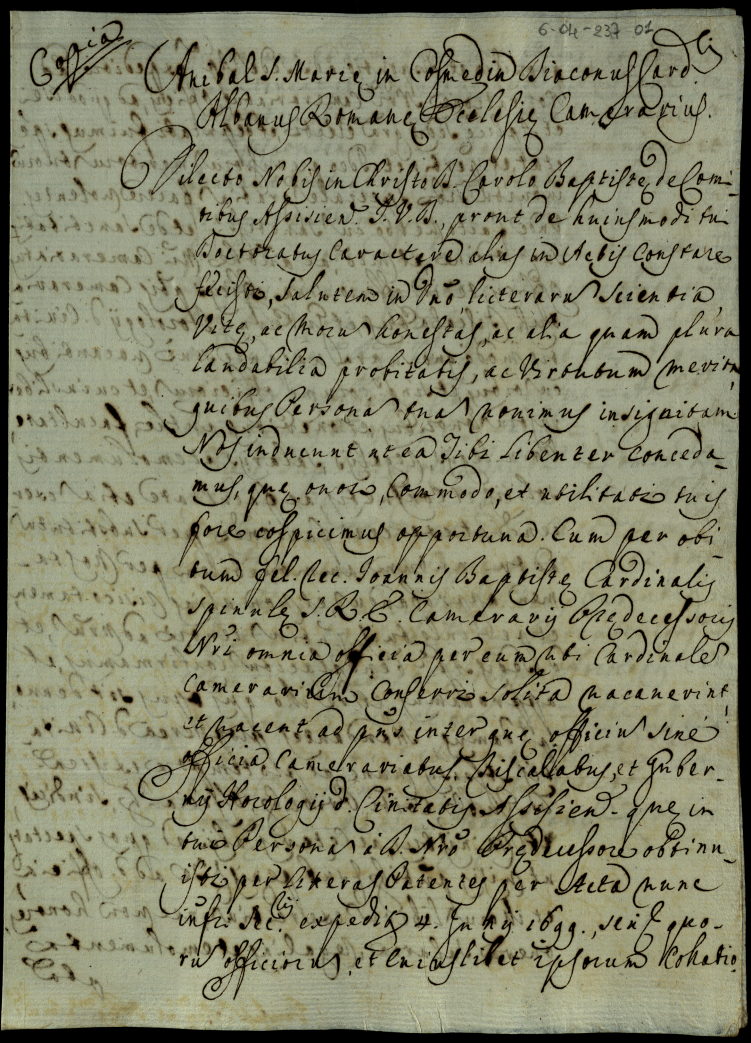 6-04-237 01
Copia
Anibal S. Marię in Cosmedin Diaconus Card.lis
Albanus Romanę Ecclesię Camerarius.
Dilecto Nobis in Christo D. Carolo Baptistę de Comi-
tibus Assisien. I.V.D., prout de huiusmodi tui
Doctoratus Caractere alias in Actis Constare
fecisti, Salutem in Dno, litterarum scientia,
Vitę, ac Morum honestas, ac alia quam plura
laudabilia probitatis, ac Virtutum merita,
quibus Personam tuam novimus insignitam
Nos inducunt ut ea Tibi libenter conceda-
mus, quę onori, Commodo, et utilitati tuis
fore cospicimus opportuna. Cum per obi-
tum fel. rec. Joannis Baptistę Cardinalis
Spinulę S.R.E. Camerarij Prędecessoris
Nri omnia officia per eum, ubi Cardinalem
Camerarium Conferri solita vacaverint,
et vacent ad pñs inter quę officium sine
officia Camerariatus, Discallatus, et Guber-
nij Horologij d. Civitatis Assisien. quę in
tui Personam à D. Nro Prędecessore obtinu-
isti per literas Patentes per Acta nunc
infri Sec.rij expedit 4. Junij 1699., seu quo-
rum officiorum, et cuiuslibet ipsorum Collatio